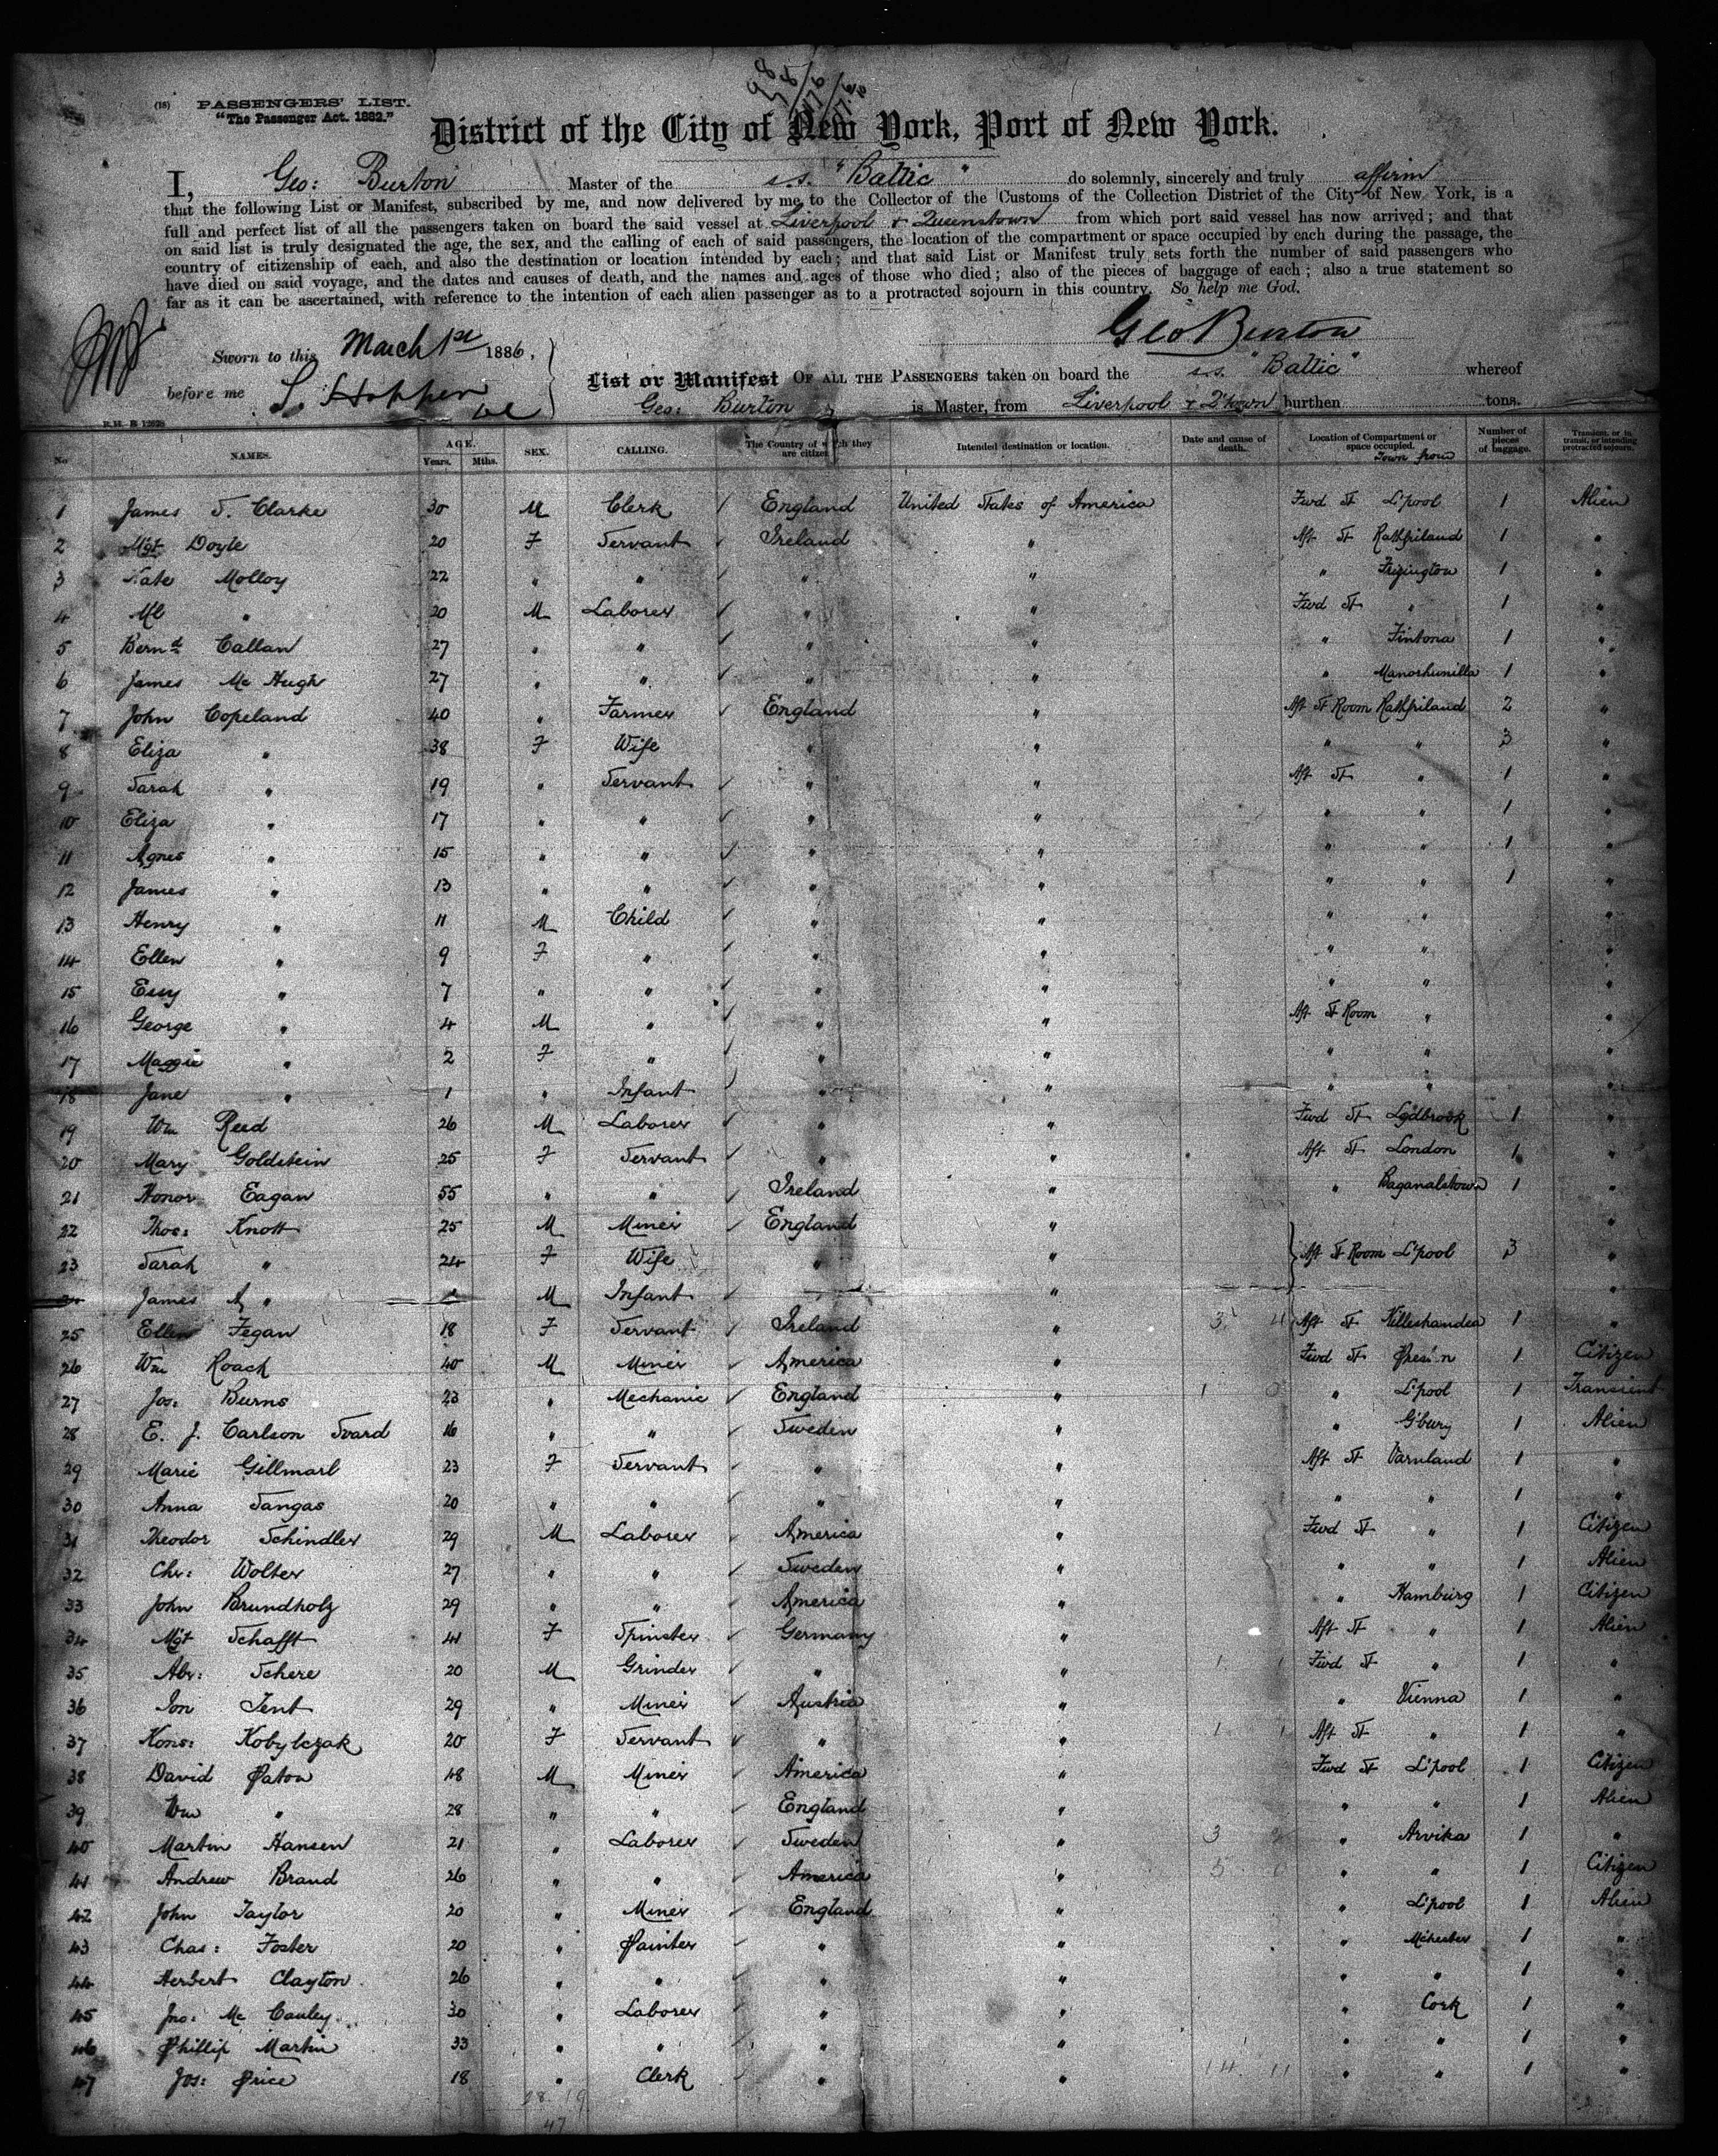 (18) PASSENGERS' LIST.
"The Passenger Act. 1882."
District of the City of New York, Port of New York.
I, Geo: Burton Master of the s.s. "Baltic" do solemnly, sincerely and truly affirm
that the following List or Manifest, subscribed by me, and now delivered by me to the Collector of the Customs of the Collection District of the City of New York, is a
full and perfect list of all the passengers taken on board the said vessel at Liverpool & Queenstown from which port said vessel has now arrived; and that
on said list is truly designated the age, the sex, and the calling of each of said passengers, the location of the compartment or space occupied by each during the passage, the
country of citizenship of each, and also the destination or location intended by each; and that said List or Manifest truly sets forth the number of said passengers who
have died on said voyage, and the dates and causes of death, and the names and ages of those who died; also of the pieces of baggage of each; also a true statement so
far as it can be ascertained, with reference to the intention of each alien passenger as to a protracted sojourn in this country. So help me God.
Geo Burton
Sworn to this March 1st 1886,
before me
List or Manifest OF ALL THE PASSENGERS taken on board the s.s. "Baltic" whereof
Geo: Burton is Master, from Liverpool & Q'town burthen tons.
No NAMES. AGE. Years. Mths. SEX. CALLING. The Country of which they are citizens Intended destination or location. Date and cause of death. Location of Compartment or space occupied. Town from Number of pieces of baggage. Transient, or in transit, or intending protracted sojourn.
1 James T. Clarke 30 M Clerk England United States of America Fwd St L'pool 1 Alien
2 Mgt Doyle 20 F Servant Ireland " Aft St Rathfriland 1 "
3 Kate Molloy 22 " " " " " Frizington 1 "
4 Ml " 20 M Laborer " " Fwd St " 1 "
5 Bernd Callan 27 " " " " " Fintona 1 "
6 James Mc Hugh 27 " " " " " Manorhumilla 1 "
7 John Copeland 40 " Farmer England " Aft St Room Rathfriland 2 "
8 Eliza " 38 F Wife " " " " 3 "
9 Sarah " 19 " Servant " " Aft St " 1 "
10 Eliza " 17 " " " " " " 1 "
11 Agnes " 15 " " " " " " 1 "
12 James " 13 " " " " " " 1 "
13 Henry " 11 M Child " " " " "
14 Ellen " 9 F " " " " " "
15 Essy " 7 " " " " " " "
16 George " 4 M " " " Aft St Room " "
17 Maggie " 2 F " " " " " "
18 Jane " 1 " Infant " " " " "
19 Wm Reed 26 M Laborer " " Fwd St Lydbrook 1 "
20 Mary Goldstein 25 F Servant " " Aft St London 1 "
21 Honor Eagan 55 " " Ireland " " Baganalstown 1 "
22 Thos: Knott 25 M Miner England " "
23 Sarah " 24 F Wife " " Aft St Room L'pool 3 "
James A " M Infant " " "
25 Ellen Fegan 18 F Servant Ireland " Aft St Killeshandra 1 "
26 Wm Roach 40 M Miner America " Fwd St 1 Citizen
27 Jos: Burns 23 " Mechanic England " " L'pool 1 Transient
28 E. J. Carlson Svard 16 " " Sweden " " G'burg 1 Alien
29 Marie Gillmarl 23 F Servant " " Aft St Varnland 1 "
30 Anna Tangas 20 " " " " " " 1 "
31 Theodor Schindler 29 M Laborer America " Fwd St " 1 Citizen
32 Chr: Wolter 27 " " Sweden " " " 1 Alien
33 John Brundholz 29 " " America " " Hamburg 1 Citizen
34 Mgt Schafft 41 F Spinster Germany " Aft St " 1 Alien
35 Abr: Schere 20 M Grinder " " Fwd St " 1 "
36 Ion Tent 29 " Miner Austria " " Vienna 1 "
37 Kons: Kobylczak 20 F Servant " " Aft St " 1 "
38 David Paton 48 M Miner America " Fwd St L'pool 1 Citizen
39 Wm " 28 " " England " " " 1 Alien
40 Martin Hansen 21 " Laborer Sweden " " Arvika 1 "
41 Andrew Brand 26 " " America " " " 1 Citizen
42 John Taylor 20 " Miner England " " L'pool 1 Alien
43 Chas: Foster 20 " Painter " " " M'chester 1 "
44 Herbert Clayton 26 " " " " " " 1 "
45 Jno: Mc Cauley 30 " Laborer " " " Cork 1 "
46 Phillip Martin 33 " " " " " " 1 "
47 Jos: Price 18 " Clerk " " " " 1 "
28 19
47